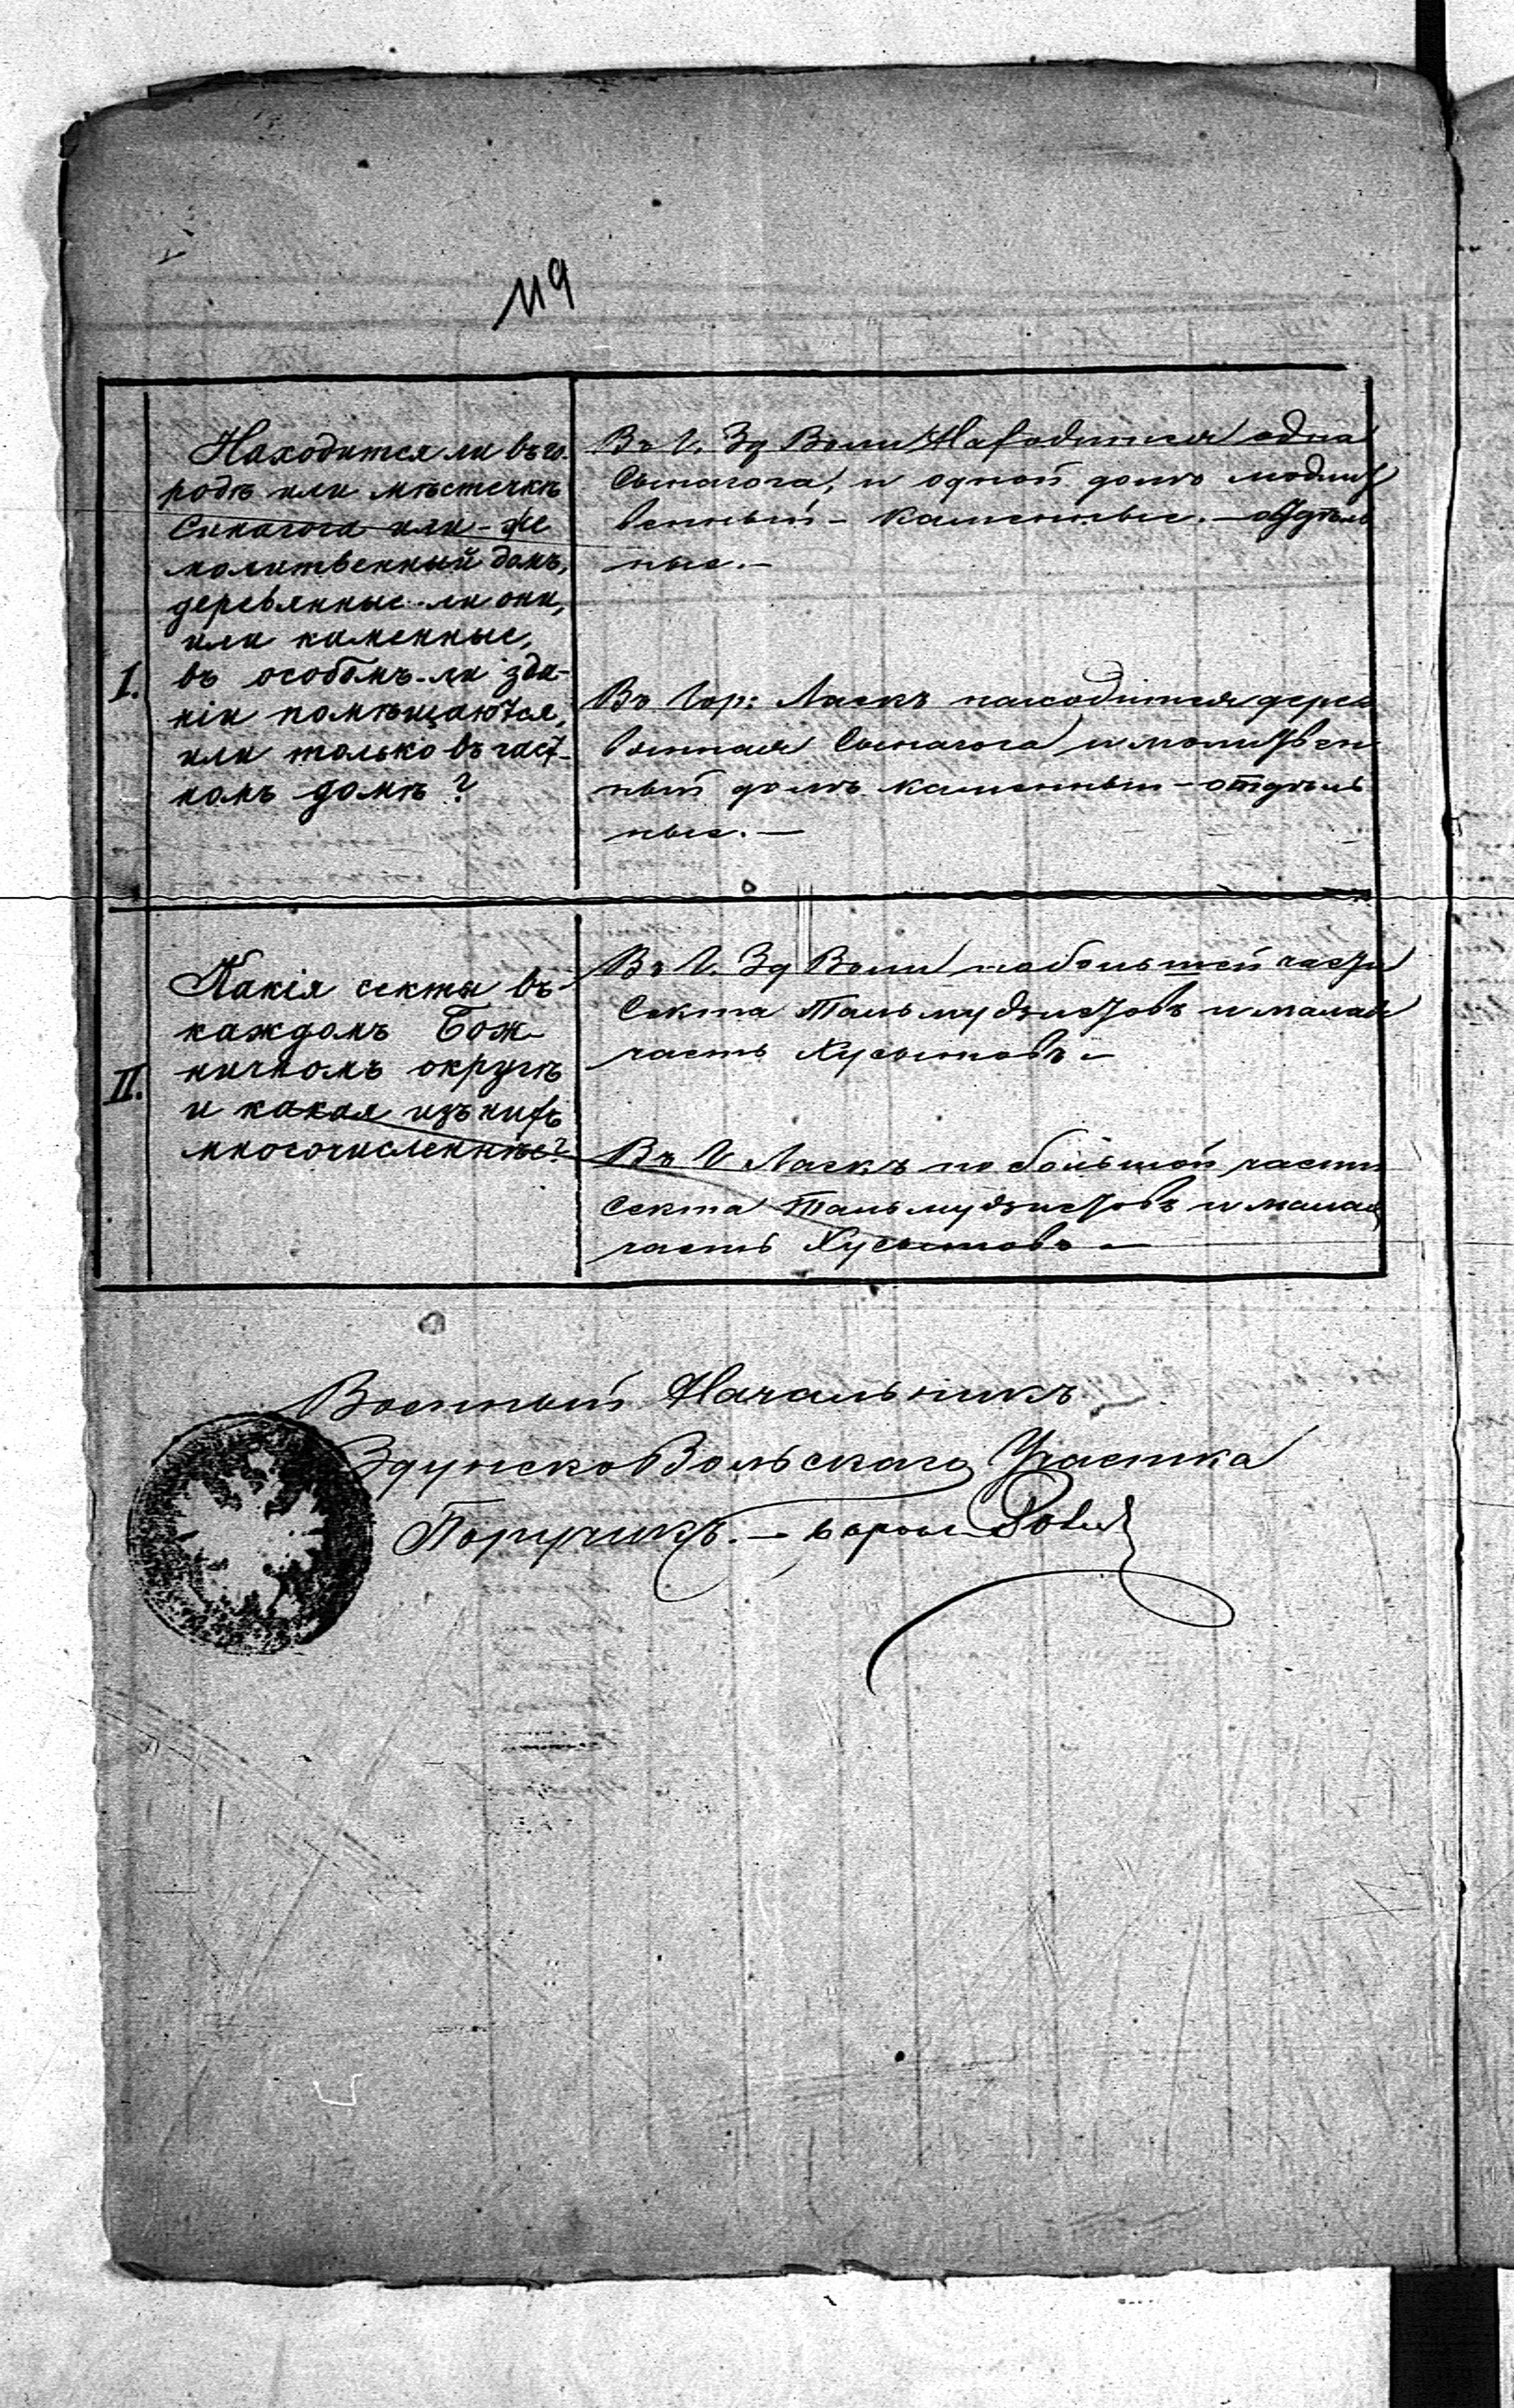 119
I.
Находится ли въ го-
родѣ или мѣстечкѣ
Синагога или-же
молитвенный домъ,
деревянные-ли они,
или каменные,
въ особомъ-ли зда-
ніи помѣщаются,
или только въ част-
номъ домѣ?
Въ Г. Зд Воли Находится одна
Сынагога, и одной домъ модлит
венный - Каменные. - отдѣль
ные. -
Въ Гор: Ласкъ находится дере
вянная Сынагога и молитвен
ный домъ каменный - отдѣль
ные. -
II.
Какія секты въ
каждомъ Бож-
ничномъ округѣ
и какая изъ нихъ
многочисленнѣе?
Въ Г. Зд Воли побольшей части
Секта Тальмудзистовъ и малая
часть Хусытовъ -
Въ Г Ласкъ по большой части
Секта Тальмудзистовъ и малая
часть Хусытовъ -
Военный Начальникъ
ЗдунскоВольскаго Участка
Поручикъ. - баронъ